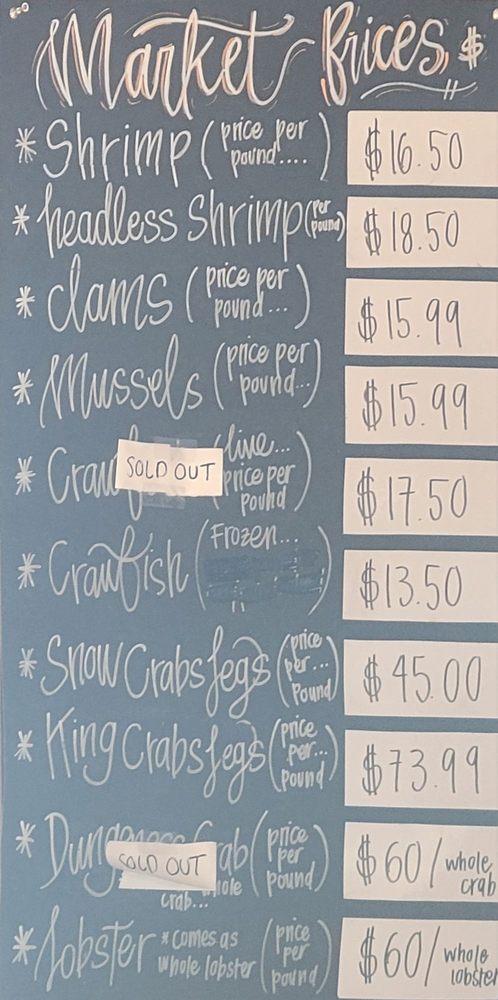 Market Prices $
* Shrimp (price per pound....) $16.50
* headless Shrimp (per pound) $18.50
* Clams (price per pound...) $15.99
* Mussels (price per pound...) $15.99
* Craw SOLD OUT (live... price per pound) $17.50
* Crawfish (Frozen...) $13.50
* Snow Crabs legs (price per... Pound) $45.00
* King Crabs legs (price per... pound) $73.99
* Dungeness Crab SOLD OUT crab... (price per pound) $60/whole crab
* lobster *comes as whole lobster (price per pound) $60/whole lobster